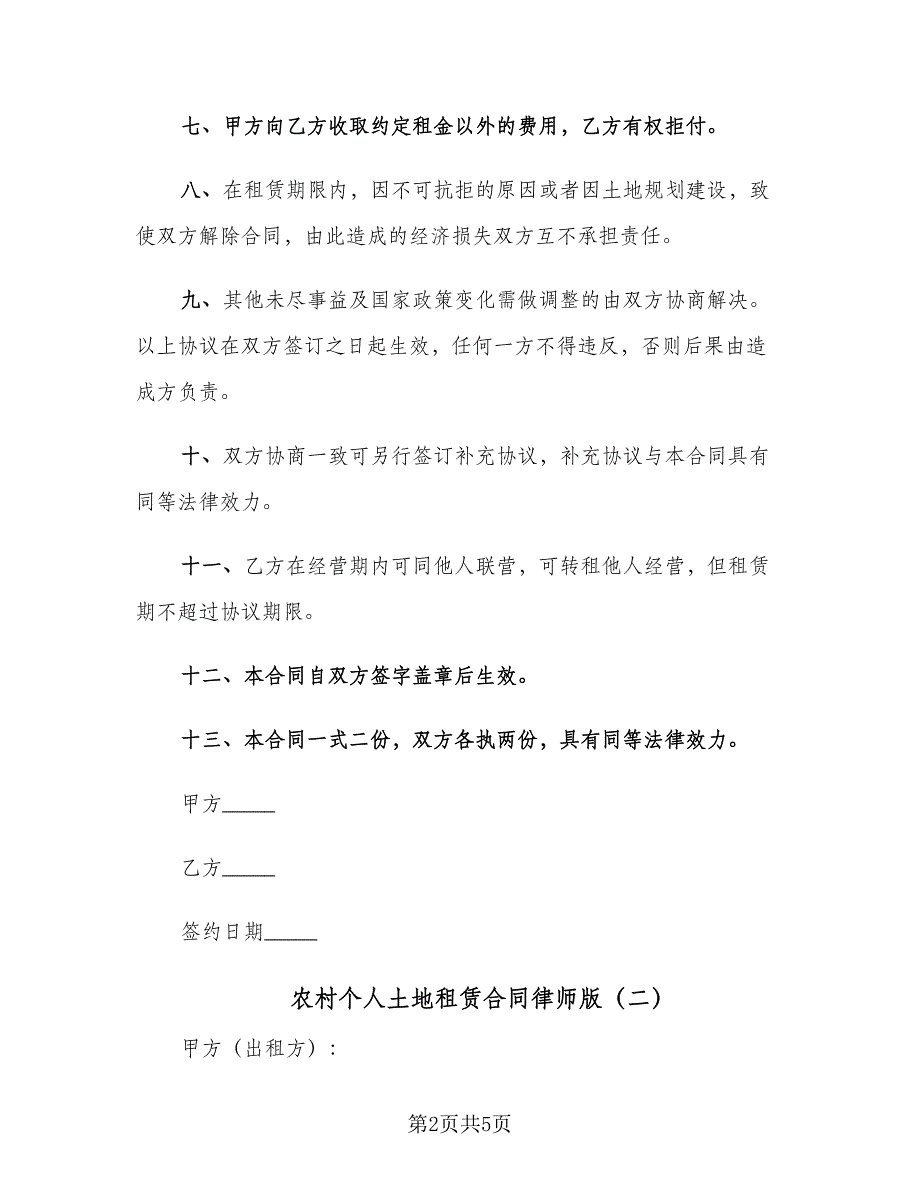 七、甲方向乙方收取约定租金以外的费用，乙方有权拒付。
八、在租赁期限内，因不可抗拒的原因或者因土地规划建设，致
使双方解除合同，由此造成的经济损失双方互不承担责任。
九、其他未尽事益及国家政策变化需做调整的由双方协商解决。
以上协议在双方签订之日起生效，任何一方不得违反，否则后果由造
成方负责。
十、双方协商一致可另行签订补充协议，补充协议与本合同具有
同等法律效力。
十一、乙方在经营期内可同他人联营，可转租他人经营，但租赁
期不超过协议期限。
十二、本合同自双方签字盖章后生效。
十三、本合同一式二份，双方各执两份，具有同等法律效力。
甲方_____
乙方_____
签约日期_____
农村个人土地租赁合同律师版（二）
甲方（出租方）：
第2页共5页